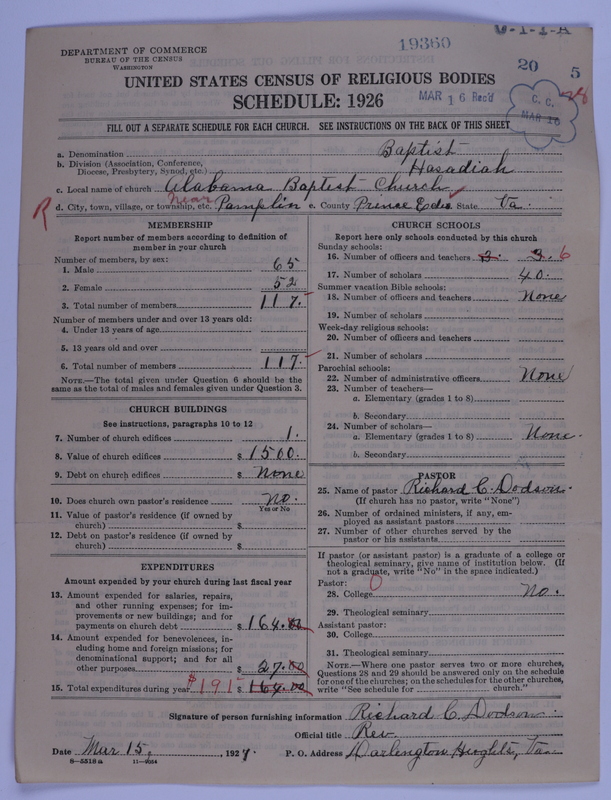 19360
DEPARTMENT OF COMMERCE
BUREAU OF THE CENSUS
WASHINGTON
20 5
UNITED STATES CENSUS OF RELIGIOUS BODIES
SCHEDULE: 1926
MAR 16 Rec'd
C. C.
MAR 16
28
FILL OUT A SEPARATE SCHEDULE FOR EACH CHURCH. SEE INSTRUCTIONS ON THE BACK OF THIS SHEET
a. Denomination Baptist
b. Division (Association, Conference, Diocese, Presbytery, Synod, etc.) Hasadiah
c. Local name of church Alabama Baptist Church
R d. City, town, village, or township, etc. near Pamplin e. County Prince Edw. State Va.
MEMBERSHIP
Report number of members according to definition of
member in your church
Number of members, by sex:
1. Male 65
2. Female 52
3. Total number of members 117.
Number of members under and over 13 years old:
4. Under 13 years of age
5. 13 years old and over
6. Total number of members 117.
NOTE.—The total given under Question 6 should be
same as the total of males and females given under Question 3.
CHURCH BUILDINGS
See instructions, paragraphs 10 to 12
7. Number of church edifices 1.
8. Value of church edifices $ 1500.
9. Debt on church edifices $ None
10. Does church own pastor's residence No.
Yes or No
11. Value of pastor's residence (if owned by
church) $
12. Debt on pastor's residence (if owned by
church) $
EXPENDITURES
Amount expended by your church during last fiscal year
13. Amount expended for salaries, repairs,
and other running expenses; for im-
provements or new buildings; and for
payments on church debt $ 164.00
14. Amount expended for benevolences, in-
cluding home and foreign missions; for
denominational support; and for all
other purposes $ 27.00
15. Total expenditures during year $191 $ 164.00
CHURCH SCHOOLS
Report here only schools conducted by this church
Sunday schools:
16. Number of officers and teachers 3. 3. 6
17. Number of scholars 40.
Summer vacation Bible schools:
18. Number of officers and teachers None
19. Number of scholars
Week-day religious schools:
20. Number of officers and teachers
21. Number of scholars
Parochial schools:
22. Number of administrative officers None
23. Number of teachers—
a. Elementary (grades 1 to 8)
b. Secondary
24. Number of scholars—
a. Elementary (grades 1 to 8) None.
b. Secondary
PASTOR
25. Name of pastor Richard C. Dodson.
(If church has no pastor, write "None")
26. Number of ordained ministers, if any, em-
ployed as assistant pastors
27. Number of other churches served by the
pastor or his assistants
If pastor (or assistant pastor) is a graduate of a college or
theological seminary, give name of institution below. (If
not a graduate, write "No" in the space indicated.)
Pastor: 0
28. College No.
29. Theological seminary
Assistant pastor:
30. College
31. Theological seminary
NOTE.—Where one pastor serves two or more churches,
Questions 28 and 29 should be answered only on the schedule
for one of the churches; on the schedules for the other churches,
write "See schedule for church."
Signature of person furnishing information Richard C. Dodson
Official title Rev.
Date Mar 15, 1927. P. O. Address Darlington Heights, Va.
8—5518a 11—9054